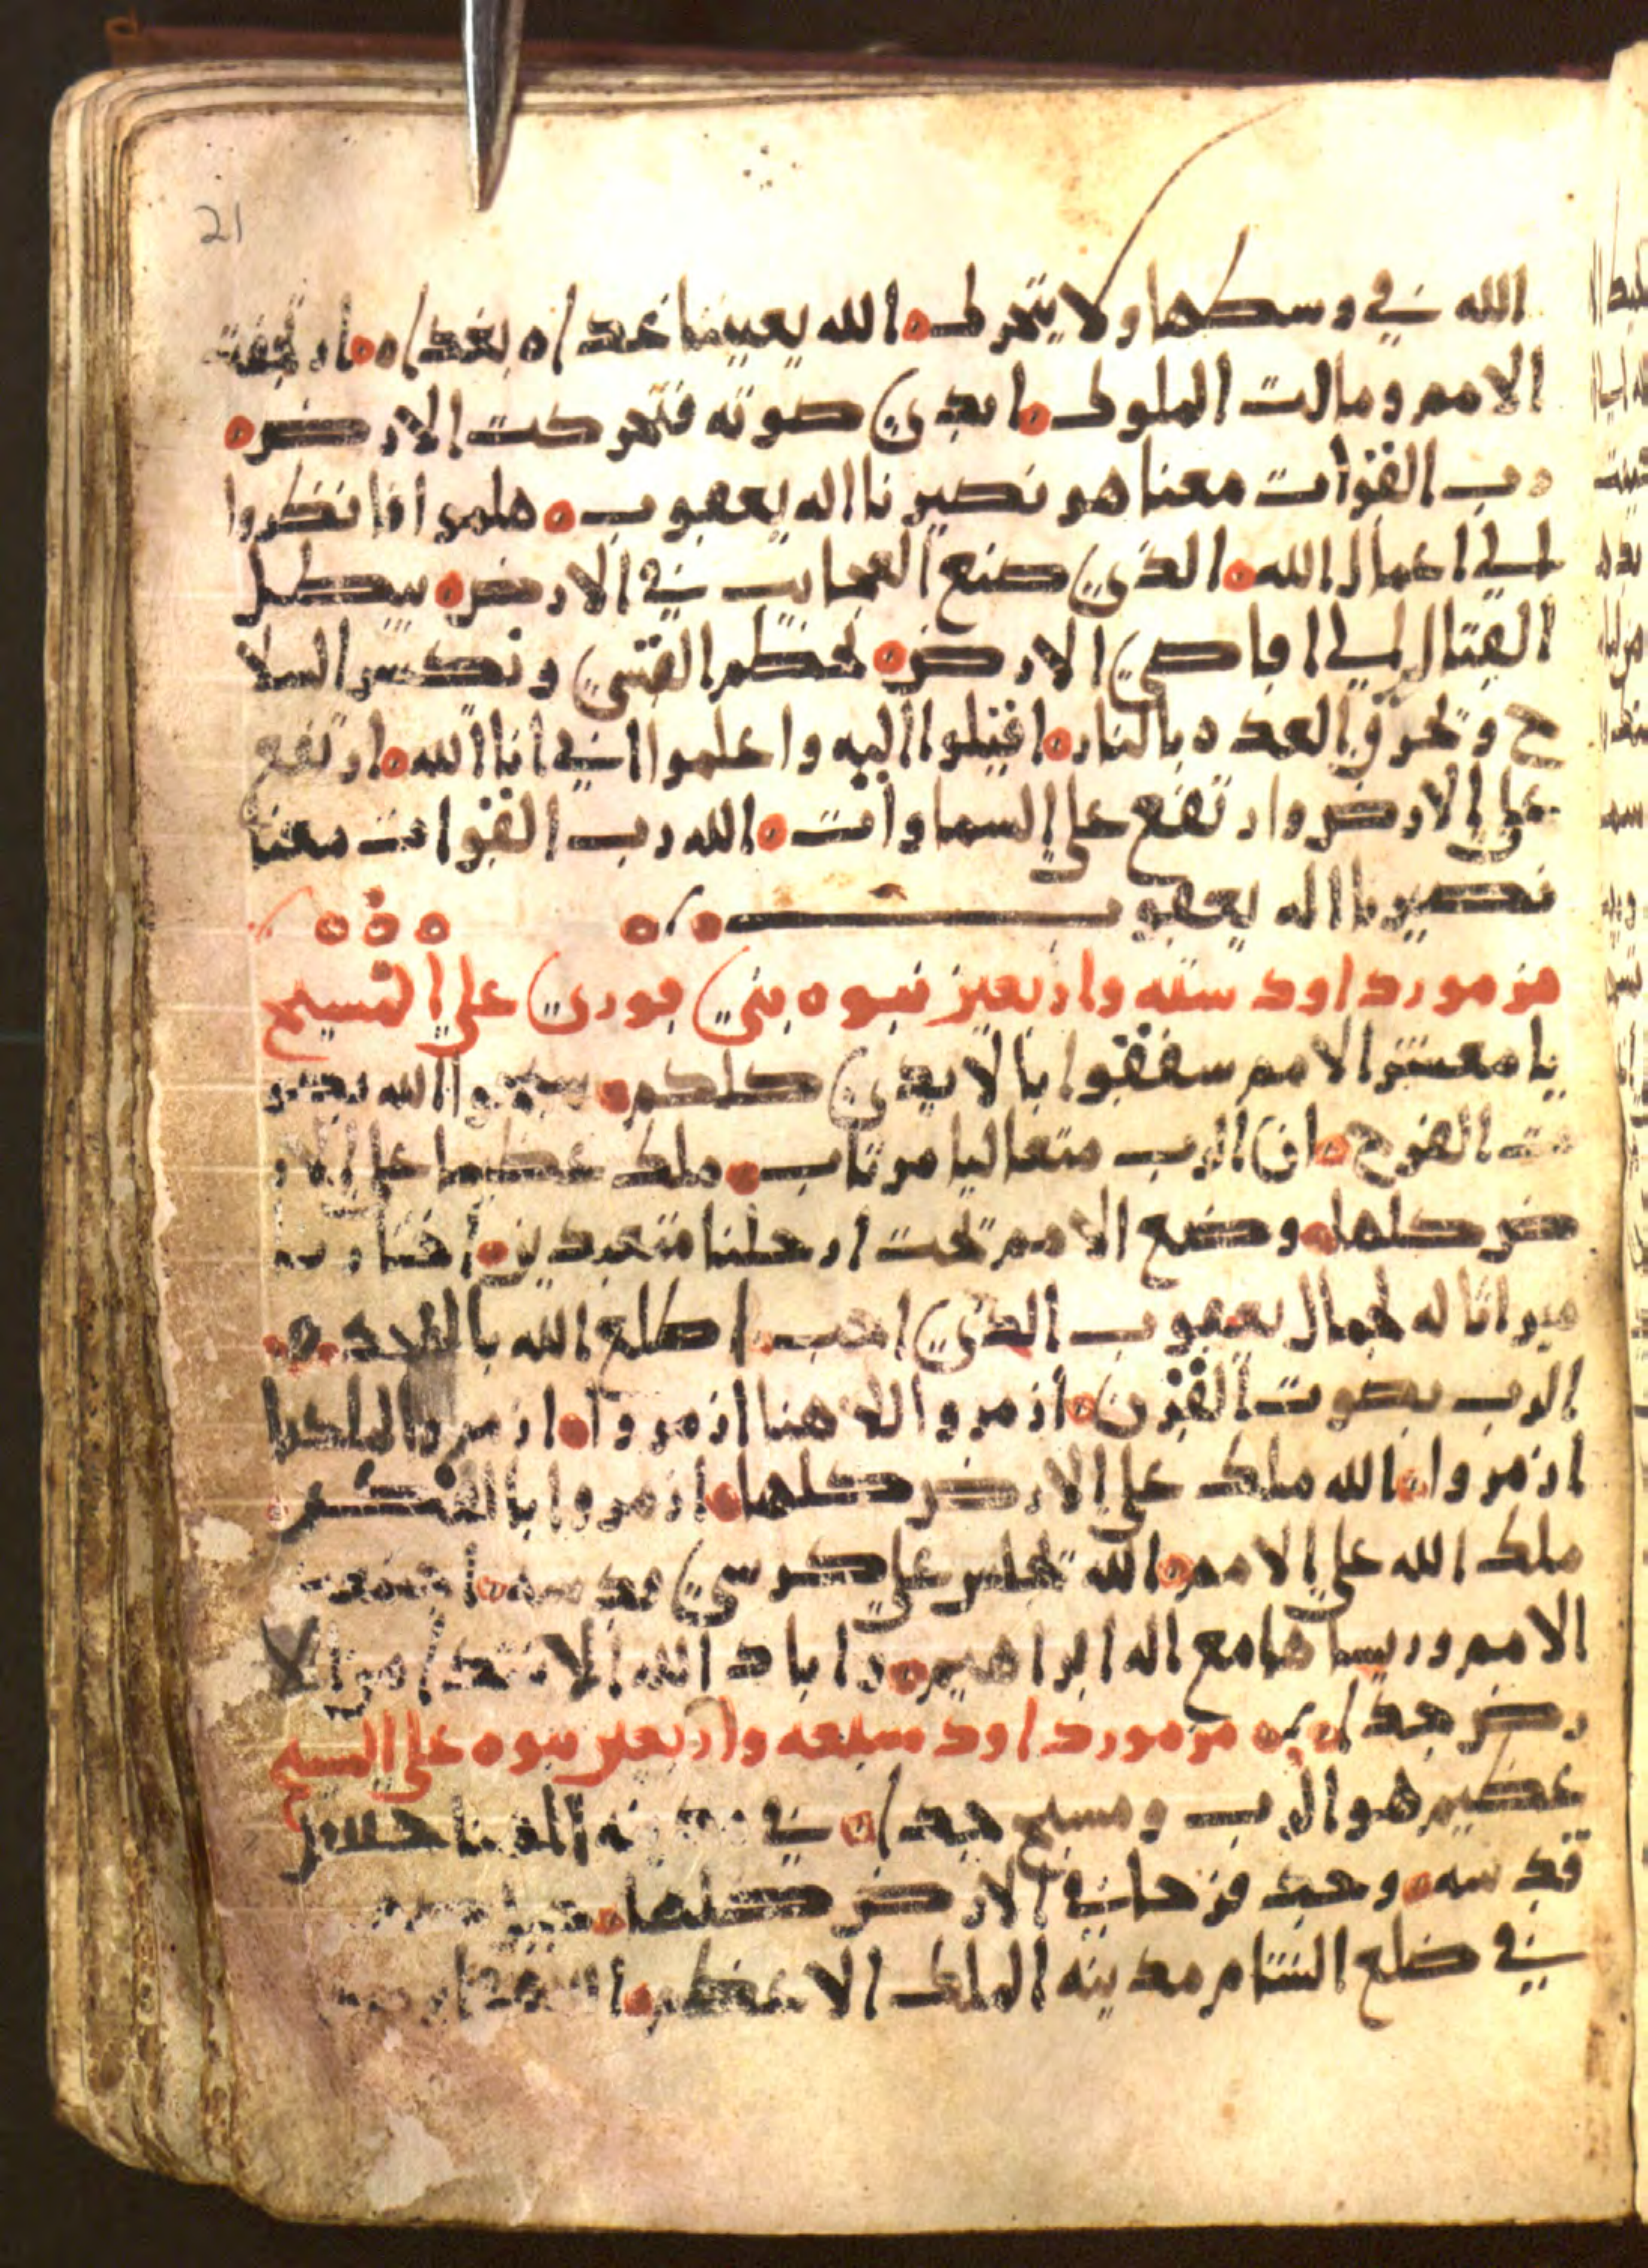 21
الله في وسطها ولا يتحرك ه الله يعيننا غداه بغداه ه ارتجفت
الامم ومالت الملوك ه ابدي صوته فتحركت الارض ه
رب القوات معنا هو نصيرنا اله يعقوب ه هلموا فانظروا
الي اعمال الله ه الذي صنع العجايب في الارض ه يبطل
القتال الي اقاصي الارض ه تحطم القسي وتكسر السلا
ح وتحرق العده بالنار ه اقبلوا اليه واعلموا اني انا الله ه ارتفع
علي الارض وارتفع علي السماوات ه الله رب القوات معنا
نصيرنا اله يعقوب ه ه ه ه ه
مزمور داود سته واربعين نبوه بني قوري علي المسيح
يا معشر الامم سفقوا بالايدي كلكم ه سبحوا الله بصو
ت الفرح ه ان الرب متعاليا مرتاب ه ملك عظيما علي الار
ض كلها ه وضع الامم تحت ارجلنا متعبدين ه اختارنا
ميراثا له لجمال يعقوب الذي احب ه اطلع الله بالمجد ه
الرب بصوت القرن ه ازمروا اللاهنا ازمروا ه ازمروا لملكنا
ازمروا ه الله ملك علي الارض كلها ه ازمروا بالفكر ه
ملك الله علي الامم ه الله تجلس علي كرسي قدسه ه اجتمعت
الامم وريساها مع اله ابراهيم ه اباد الله الاشدا من الا
رض جدا ه مزمور داود سبعه واربعين نبوه علي المسيح
عظيم هو الرب ومسبح جدا ه في مدينه الهنا جبل
قدسه ه وحيد فرحا في الارض كلها ه جبل
في ضلع الشام مدينه الملك الاعظم ه